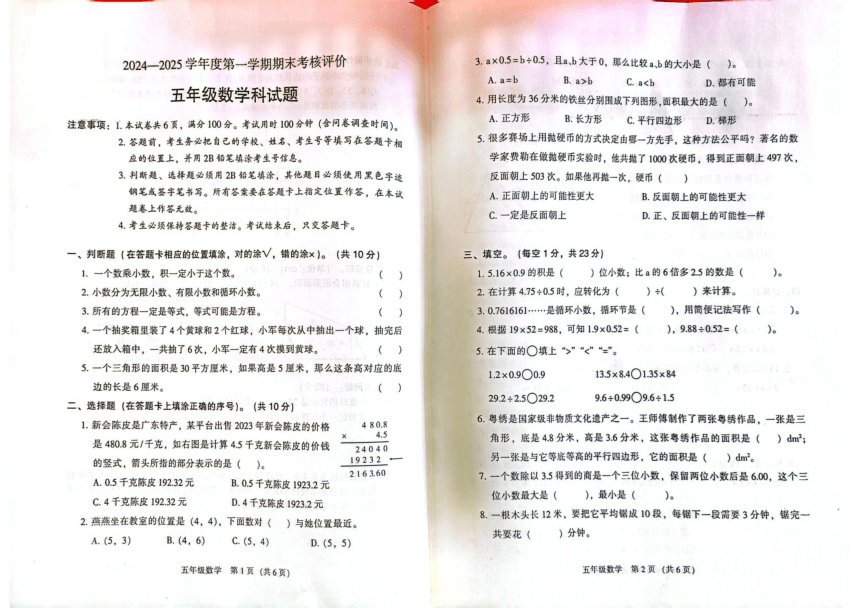 2024—2025学年度第一学期期末考核评价
五年级数学科试题
注意事项：1. 本试卷共6页，满分100分。考试用时100分钟（含问卷调查时间）。
2. 答题前，考生务必把自己的学校、姓名、考生号等填写在答题卡相
应的位置上，并用2B铅笔填涂考生号信息。
3. 判断题、选择题必须用2B铅笔填涂，其他题目必须使用黑色字迹
钢笔或签字笔书写。所有答案要在答题卡上指定位置作答，在本试
题卷上作答无效。
4. 考生必须保持答题卡的整洁。考试结束后，只交答题卡。
一、判断题（在答题卡相应的位置填涂，对的涂√，错的涂×）。（共10分）
1. 一个数乘小数，积一定小于这个数。 （ ）
2. 小数分为无限小数、有限小数和循环小数。 （ ）
3. 所有的方程一定是等式，等式可能是方程。 （ ）
4. 一个抽奖箱里装了4个黄球和2个红球，小军每次从中抽出一个球，抽完后
还放入箱中，一共抽了6次，小军一定有4次摸到黄球。 （ ）
5. 一个三角形的面积是30平方厘米，如果高是5厘米，那么这条高对应的底
边的长是6厘米。 （ ）
二、选择题（在答题卡上填涂正确的序号）。（共10分）
1. 新会陈皮是广东特产，某平台出售2023年新会陈皮的价格
是480.8元/千克，如右图是计算4.5千克新会陈皮的价钱
的竖式，箭头所指的部分表示的是（ ）。
480.8
× 4.5
24040
19232
2163.60
A. 0.5千克陈皮192.32元 B. 0.5千克陈皮1923.2元
C. 4千克陈皮192.32元 D. 4千克陈皮1923.2元
2. 燕燕坐在教室的位置是（4，4），下面数对（ ）与她位置最近。
A.（5，3） B.（4，6） C.（5，4） D.（5，5）
五年级数学 第1页（共6页）
3. a×0.5=b÷0.5，且a、b大于0，那么比较a、b的大小是（ ）。
A. a=b B. a>b C. a<b D. 都有可能
4. 用长度为36分米的铁丝分别围成下列图形，面积最大的是（ ）。
A. 正方形 B. 长方形 C. 平行四边形 D. 梯形
5. 很多赛场上用抛硬币的方式决定由哪一方先手，这种方法公平吗？著名的数
学家费勒在做抛硬币实验时，他共抛了1000次硬币，得到正面朝上497次，
反面朝上503次。如果他再抛一次，硬币（ ）
A. 正面朝上的可能性更大 B. 反面朝上的可能性更大
C. 一定是反面朝上 D. 正、反面朝上的可能性一样
三、填空。（每空1分，共23分）
1. 5.16×0.9的积是（ ）位小数；比a的6倍多2.5的数是（ ）。
2. 在计算4.75÷0.5时，应转化为（ ）÷（ ）来计算。
3. 0.7616161……是循环小数，循环节是（ ），用简便记法写作（ ）。
4. 根据19×52=988，可知1.9×0.52=（ ），9.88÷0.52=（ ）。
5. 在下面的○填上“>”“<”“=”。
1.2×0.9○0.9 13.5×8.4○1.35×84
29.2÷2.5○29.2 9.6÷0.99○9.6÷1.5
6. 粤绣是国家级非物质文化遗产之一。王师傅制作了两张粤绣作品，一张是三
角形，底是4.8分米，高是3.6分米，这张粤绣作品的面积是（ ）dm²；
另一张是与它等底等高的平行四边形，它的面积是（ ）dm²。
7. 一个数除以3.5得到的商是一个三位小数，保留两位小数后是6.00，这个三
位小数最大是（ ），最小是（ ）。
8. 一根木头长12米，要把它平均锯成10段，每锯下一段需要3分钟，锯完一
共要花（ ）分钟。
五年级数学 第2页（共6页）